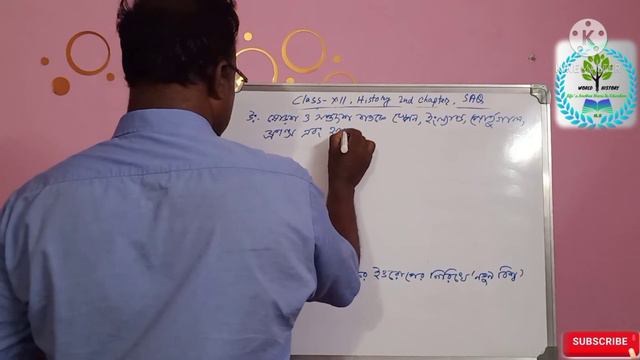 Class-XII, History 2nd chapter, SAQ
উঃ ষোড়শ ও সপ্তদশ শতকে স্পেন, ইংল্যান্ড, পোর্তুগাল,
ফ্রান্স এবং
ইউরোপের নিরিখে 'নতুন বিশ্ব'
WORLD HISTORY
SUBSCRIBE